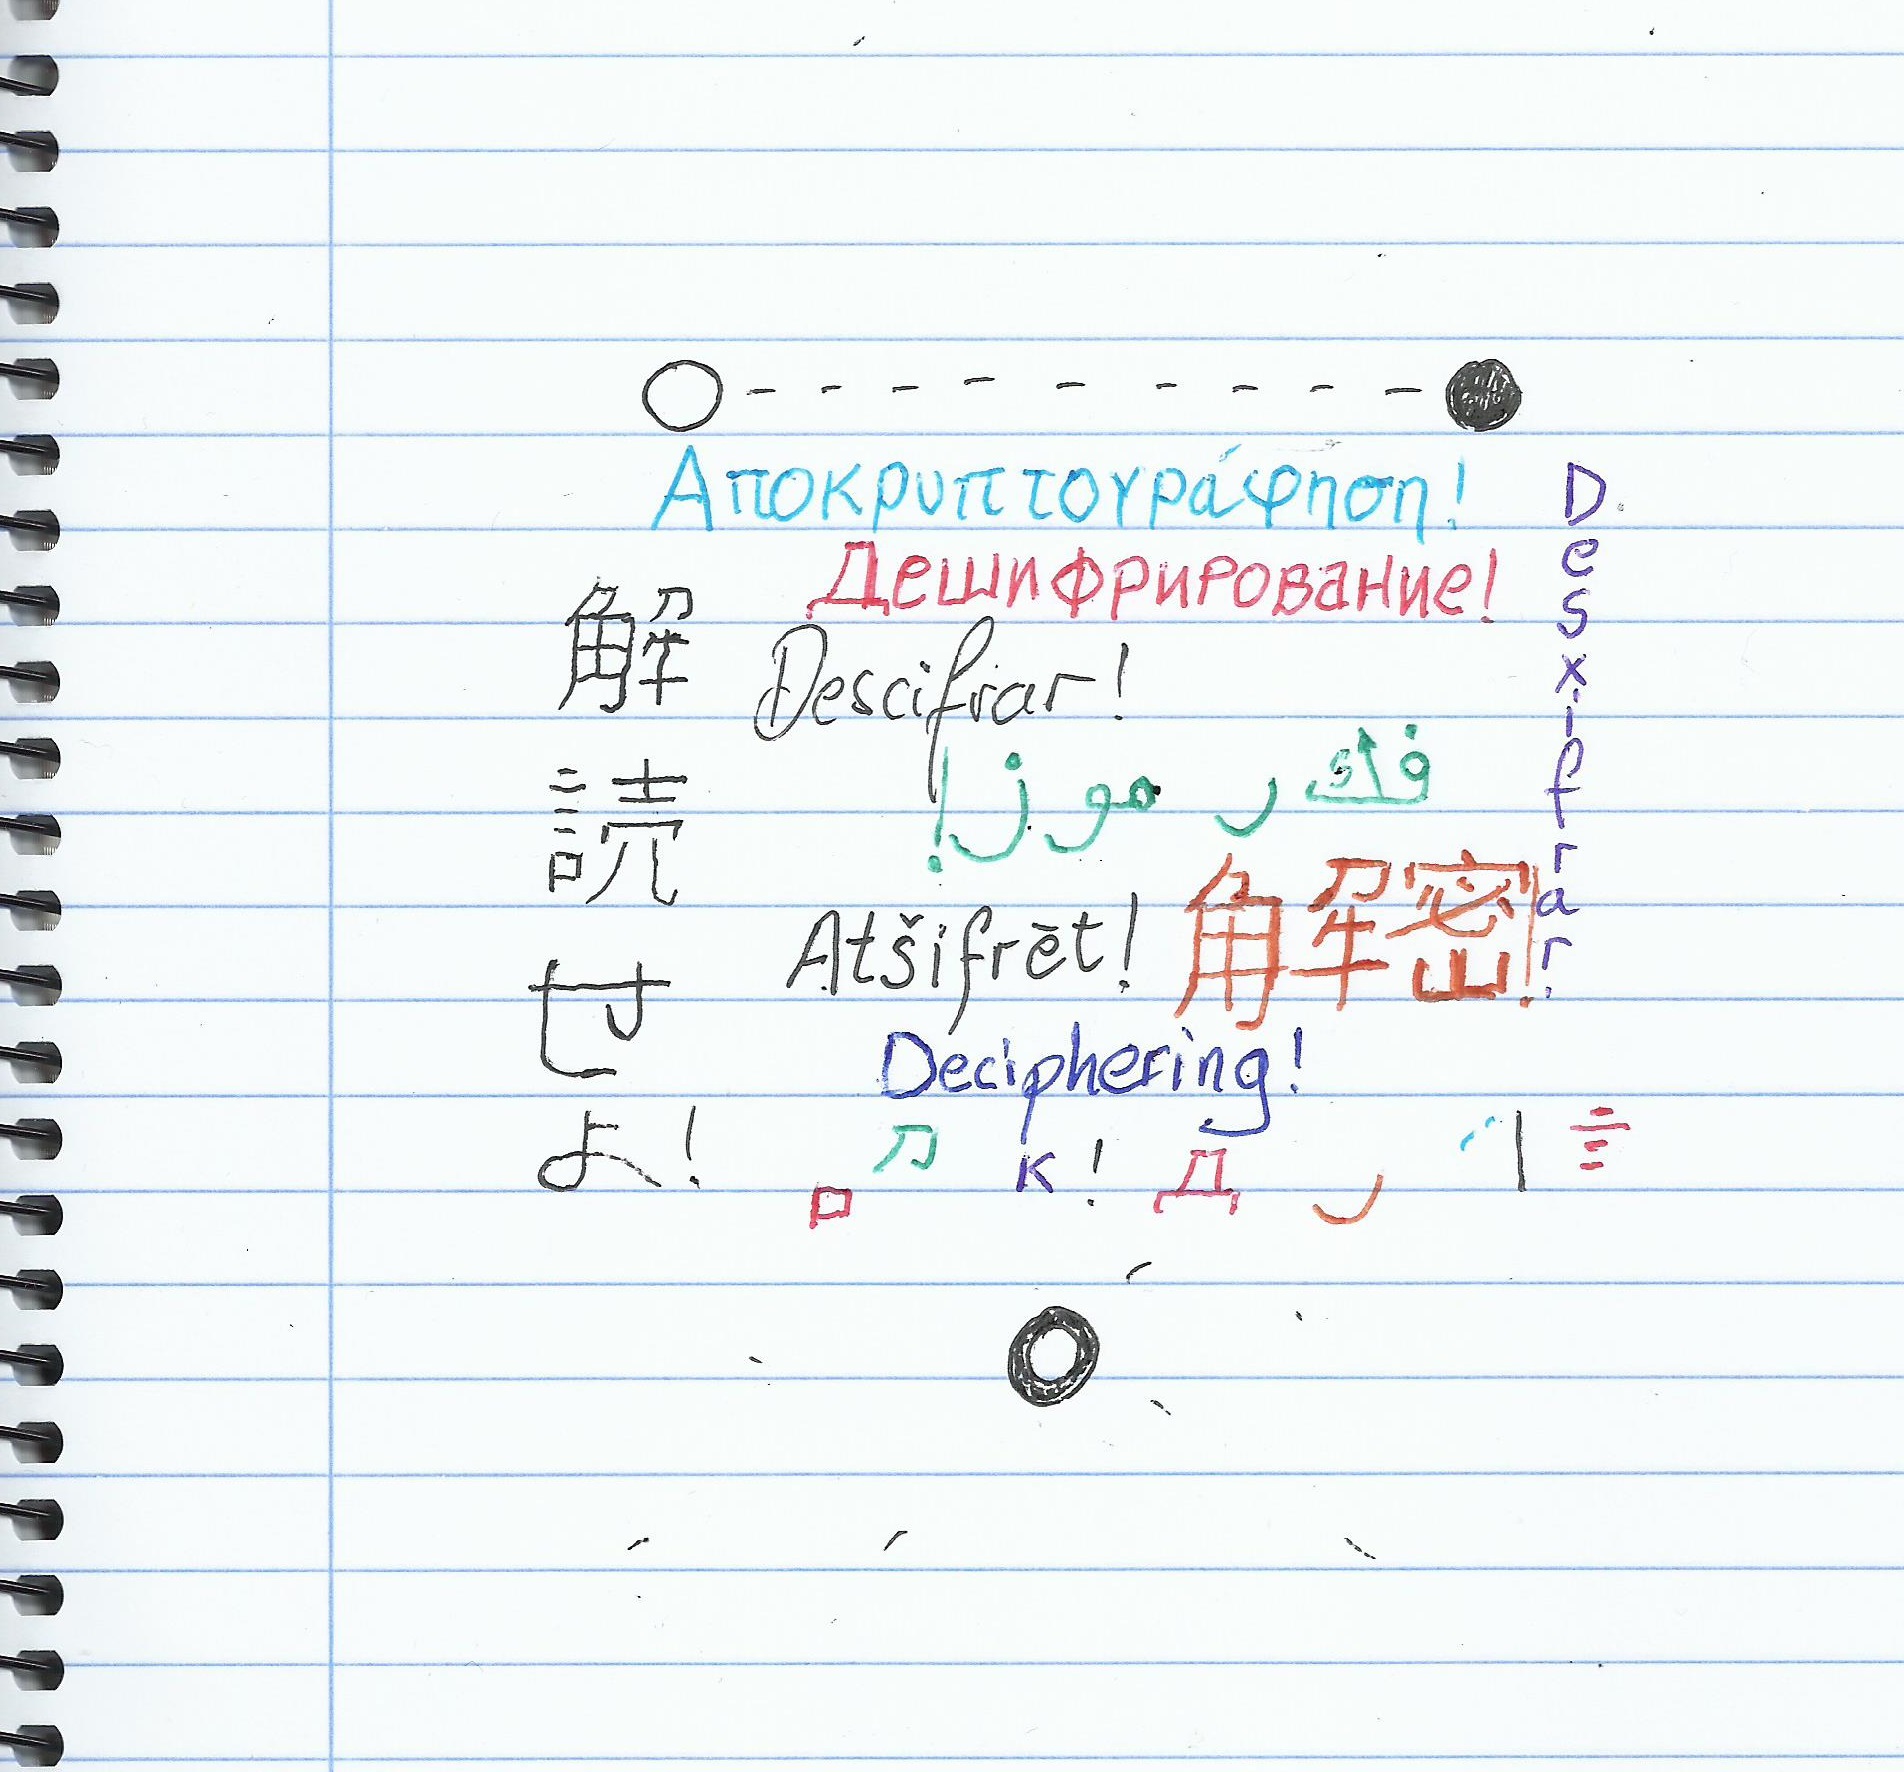 Αποκρυπτογράφηση!
Дешифрирование!
Descifrar!
فك رموز!
Atšifrēt! 解密!
Deciphering!
解読せよ!
Desxifrar!
ロ カ к! Д ر